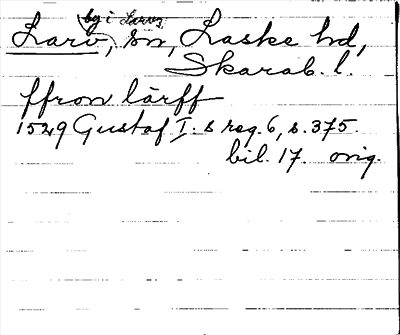 by i Larvs
Larv, sn, Laske hd,
Skarab. l.
ffron lärff
1529 Gustaf I.s reg. 6, s. 375.
bil. 17. orig.